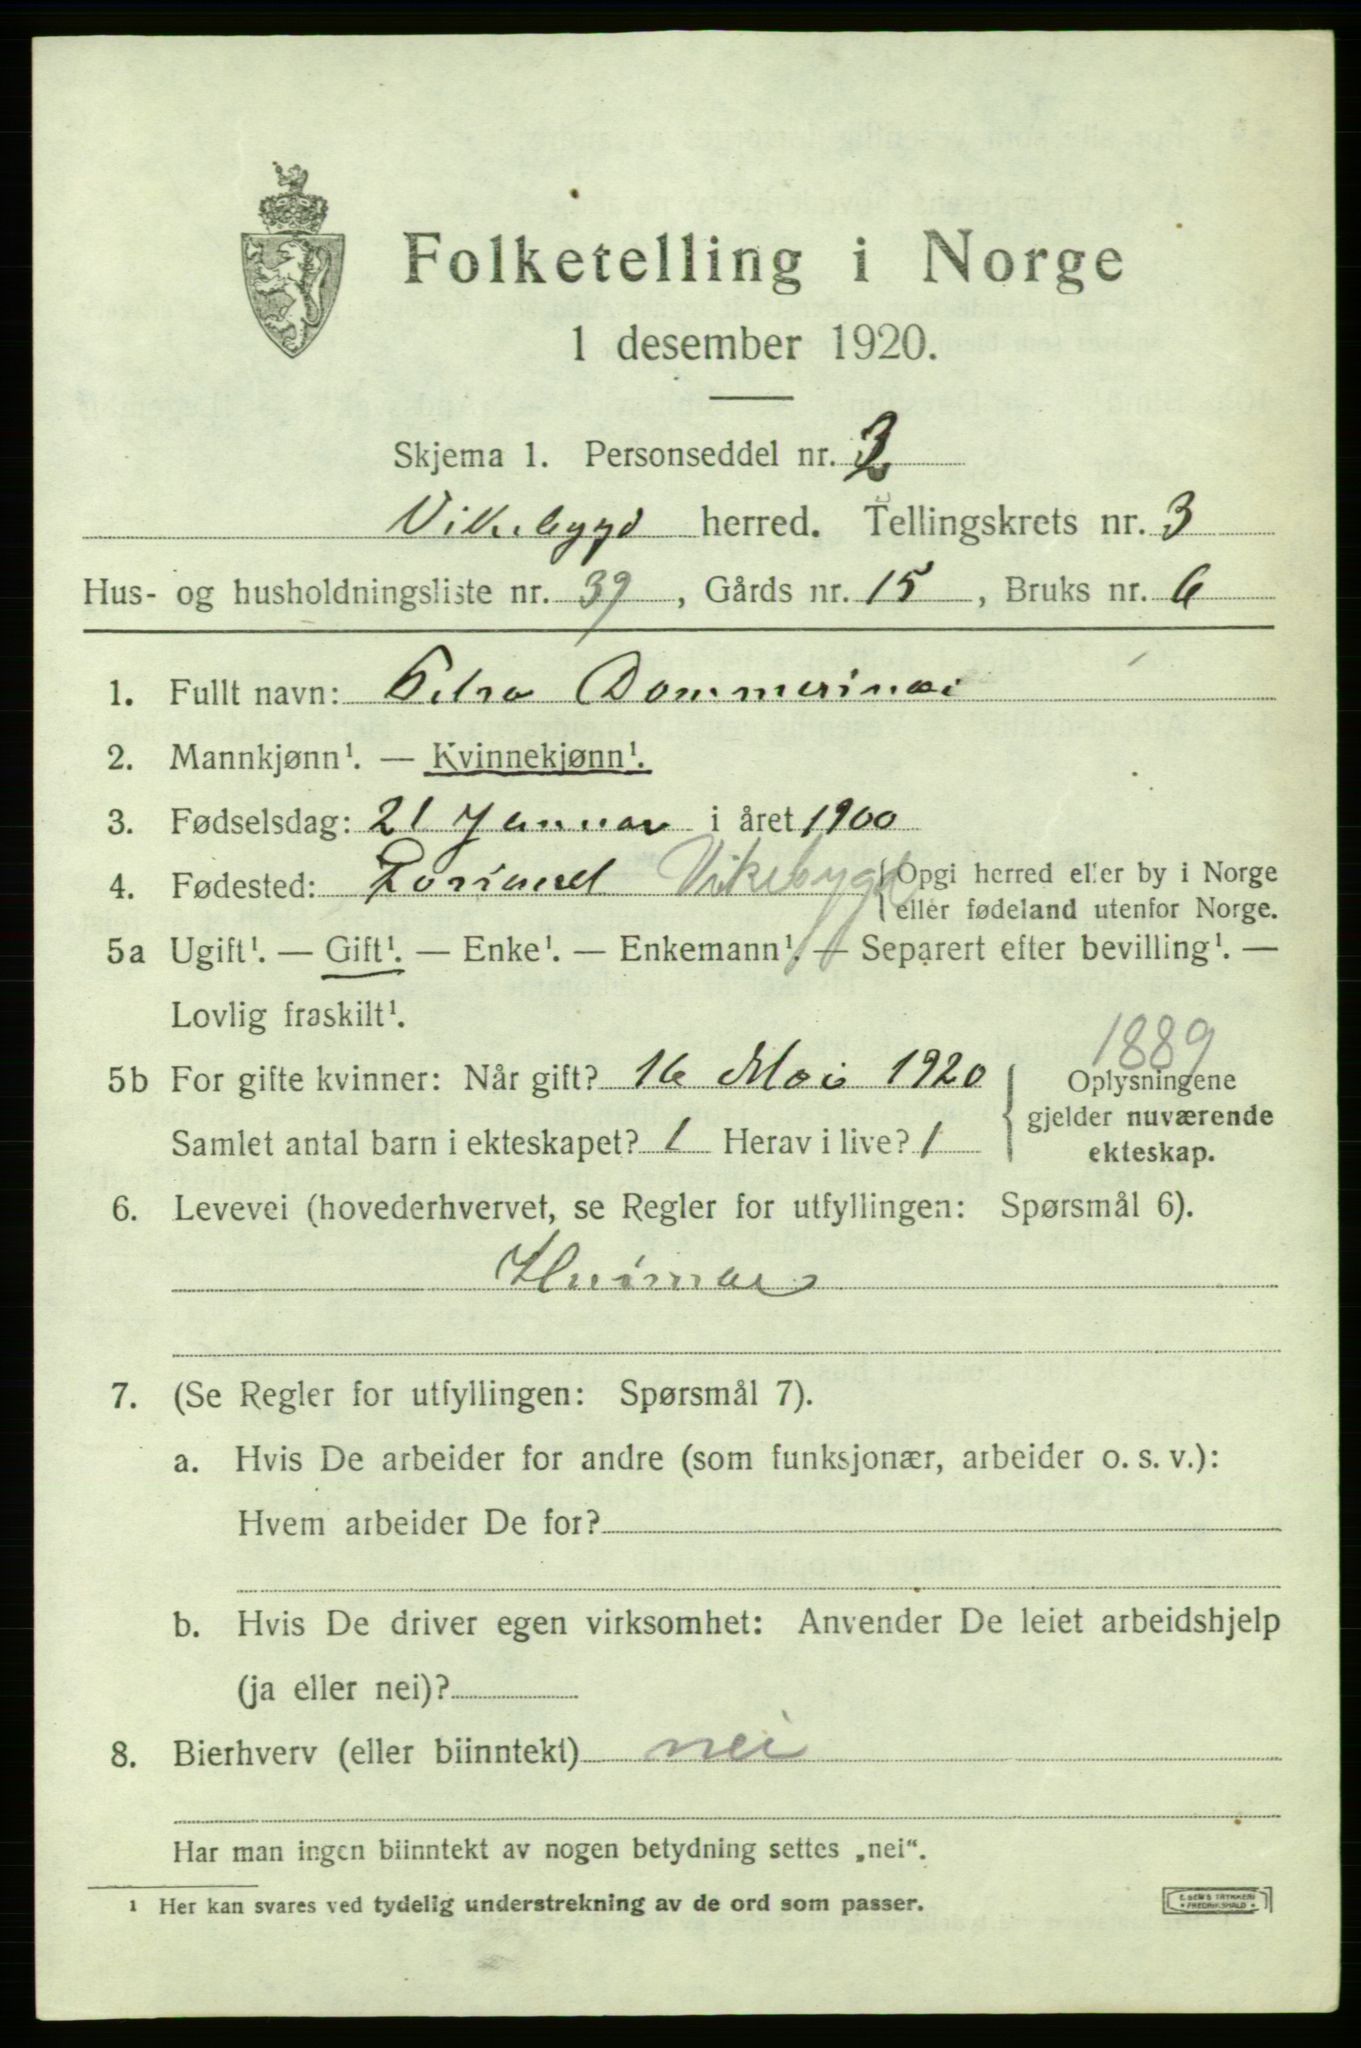 Folketelling i Norge
1 desember 1920.
Skjema 1. Personseddel nr. 2
Vikebygd herred. Tellingskrets nr. 3
Hus- og husholdningsliste nr. 39, Gårds nr. 15, Bruks nr. 6
1. Fullt navn: Petra
2. Mannkjønn¹. — Kvinnekjønn¹.
3. Fødselsdag: 21 Januar i året 1900
4. Fødested: Vikebygd Opgi herred eller by i Norge
eller fødeland utenfor Norge.
5a Ugift¹. — Gift¹. — Enke¹. — Enkemann¹. — Separert efter bevilling¹. —
Lovlig fraskilt¹.
1889
5b For gifte kvinner: Når gift? 16 Mai 1920 Oplysningene
gjelder nuværende
Samlet antal barn i ekteskapet? 1 Herav i live? 1
ekteskap.
6. Levevei (hovederhvervet, se Regler for utfyllingen: Spørsmål 6).
Husmor
7. (Se Regler for utfyllingen: Spørsmål 7).
a. Hvis De arbeider for andre (som funksjonær, arbeider o. s. v.):
Hvem arbeider De for?
b. Hvis De driver egen virksomhet: Anvender De leiet arbeidshjelp
(ja eller nei)?
8. Bierhverv (eller biinntekt) nei
Har man ingen biinntekt av nogen betydning settes „nei“.
1 Her kan svares ved tydelig understrekning av de ord som passer.